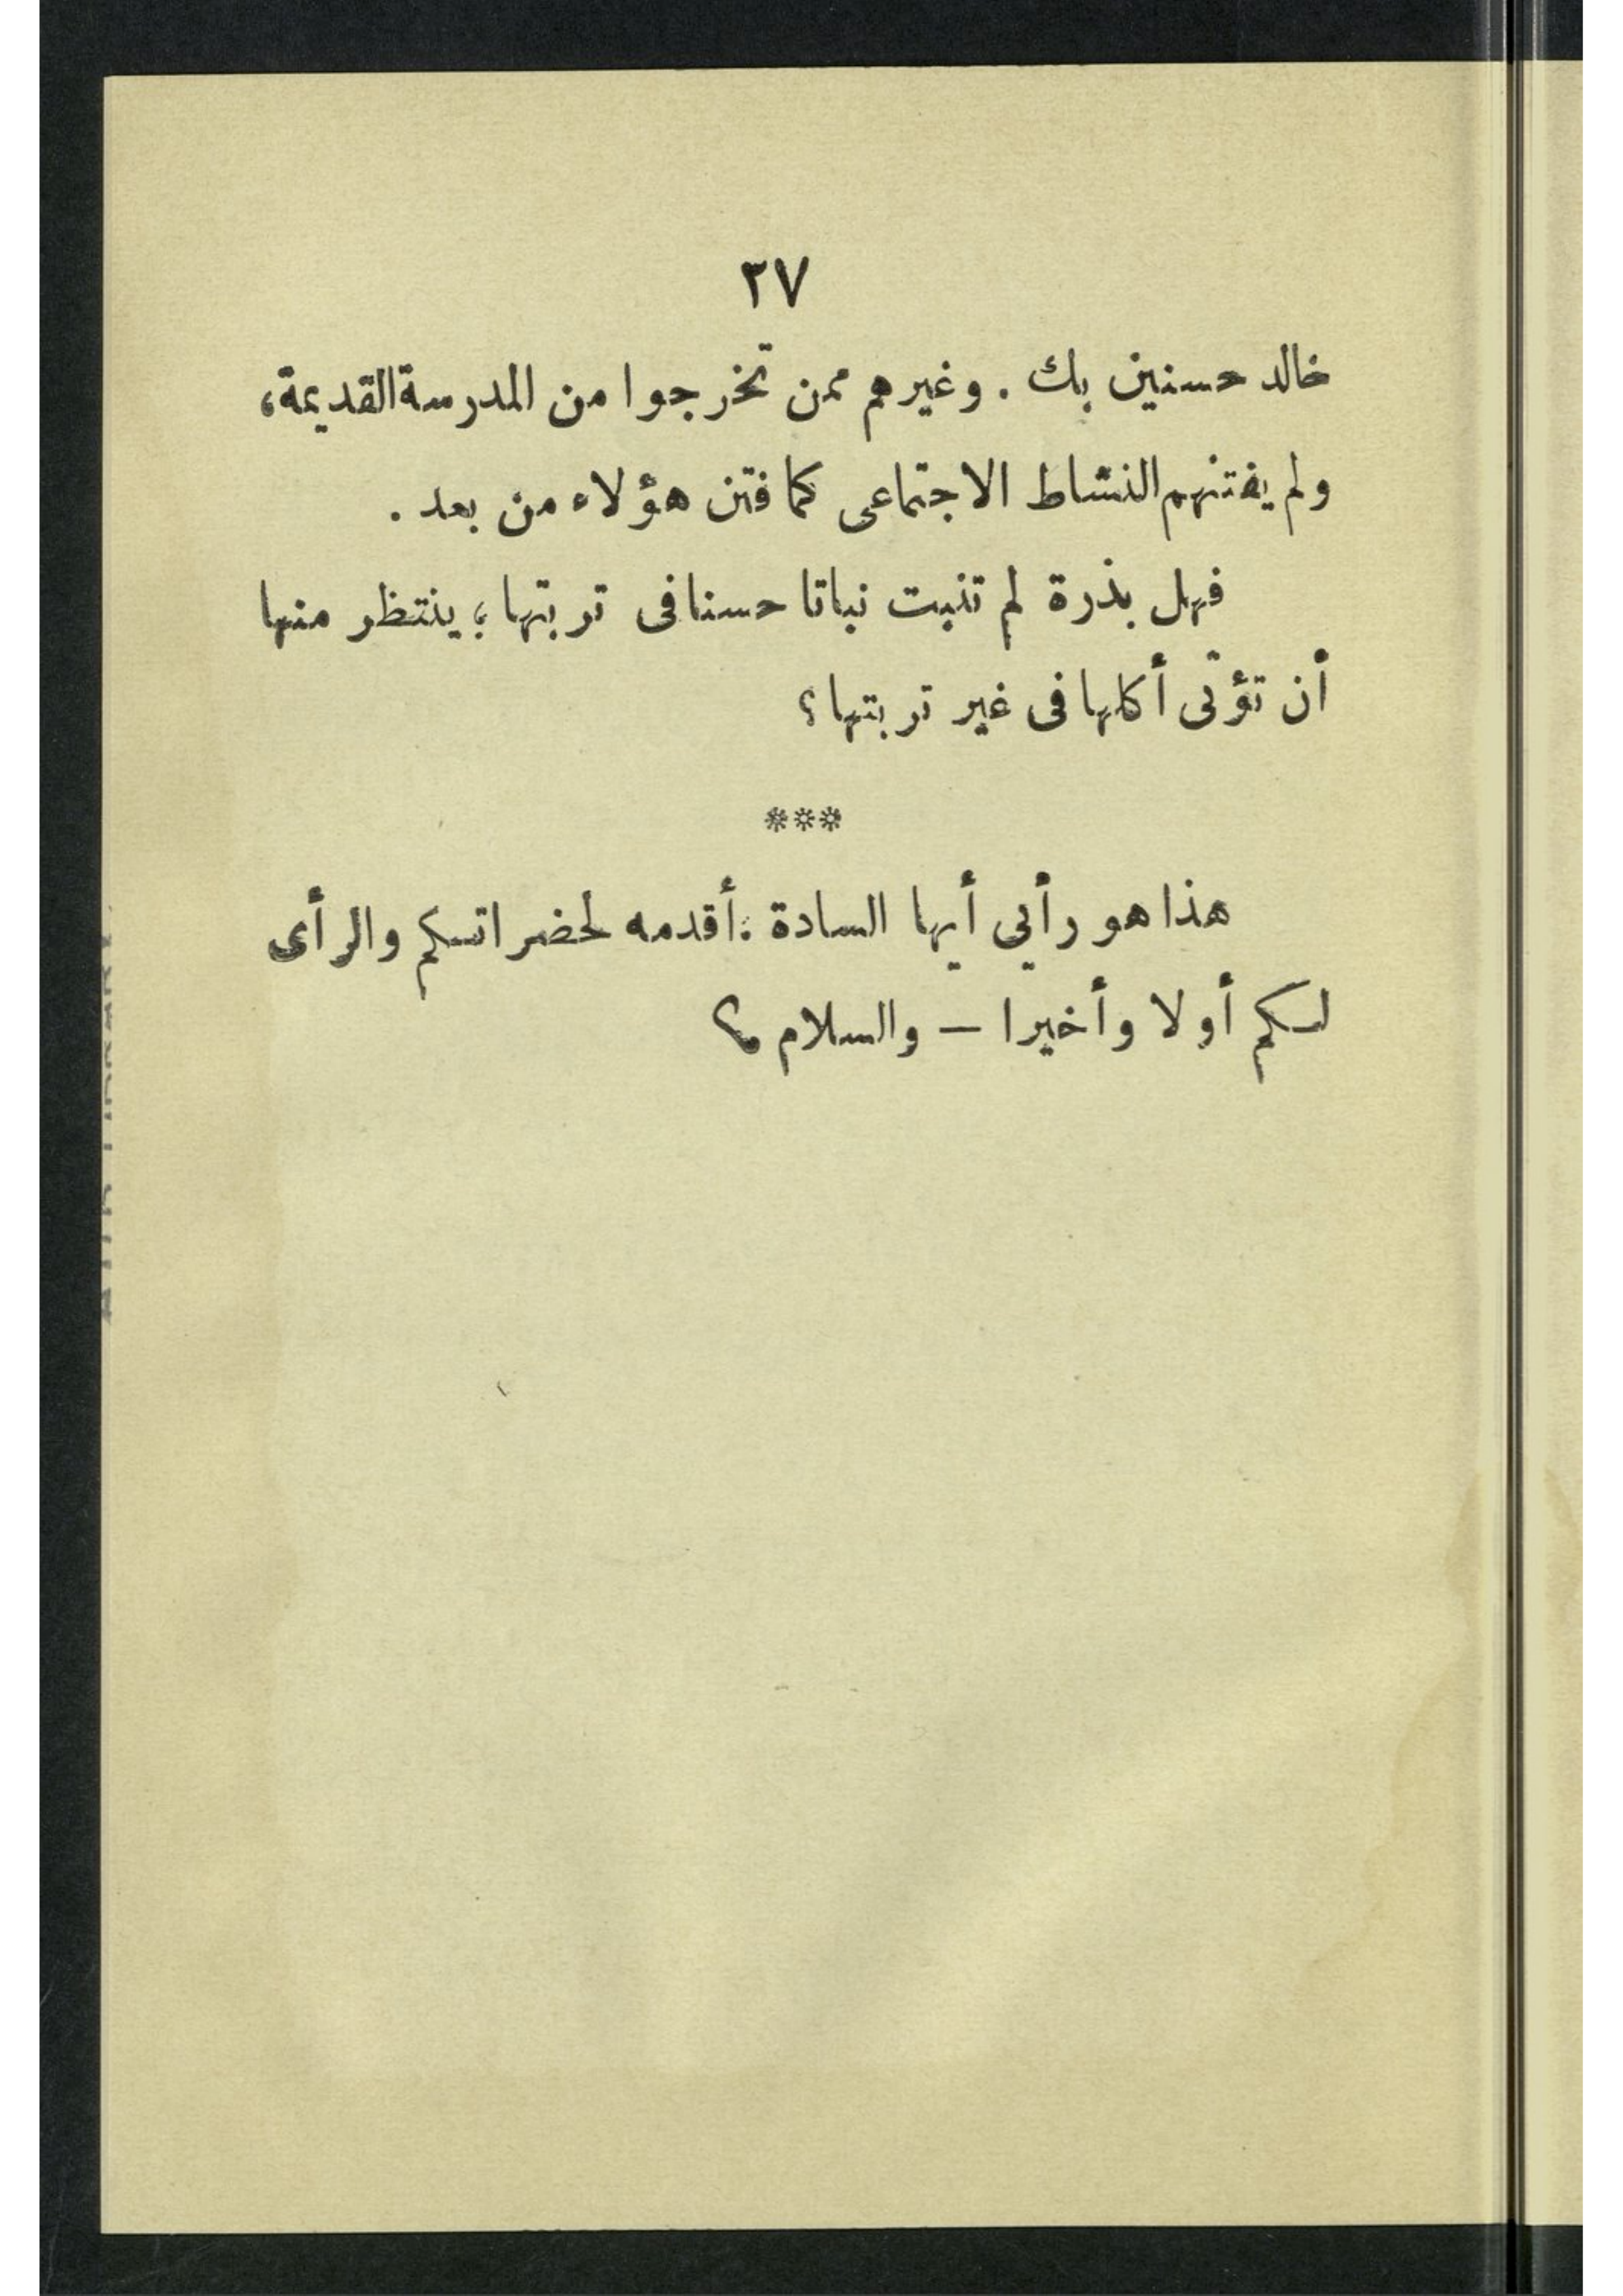 ٢٧
خالد حسنين بك . وغيرهم ممن تخرجوا من المدرسة القديمة،
ولم يفتنهم النشاط الاجتماعى كما فتن هؤلاء من بعد .
فهل بذرة لم تنبت نباتا حسنا فى تربتها ؛ ينتظر منها
أن تؤتى أكلها فى غير تربتها ؟
***
هذا هو رأيي أيها السادة : أقدمه لحضراتكم والرأى
لكم أولا وأخيرا — والسلام